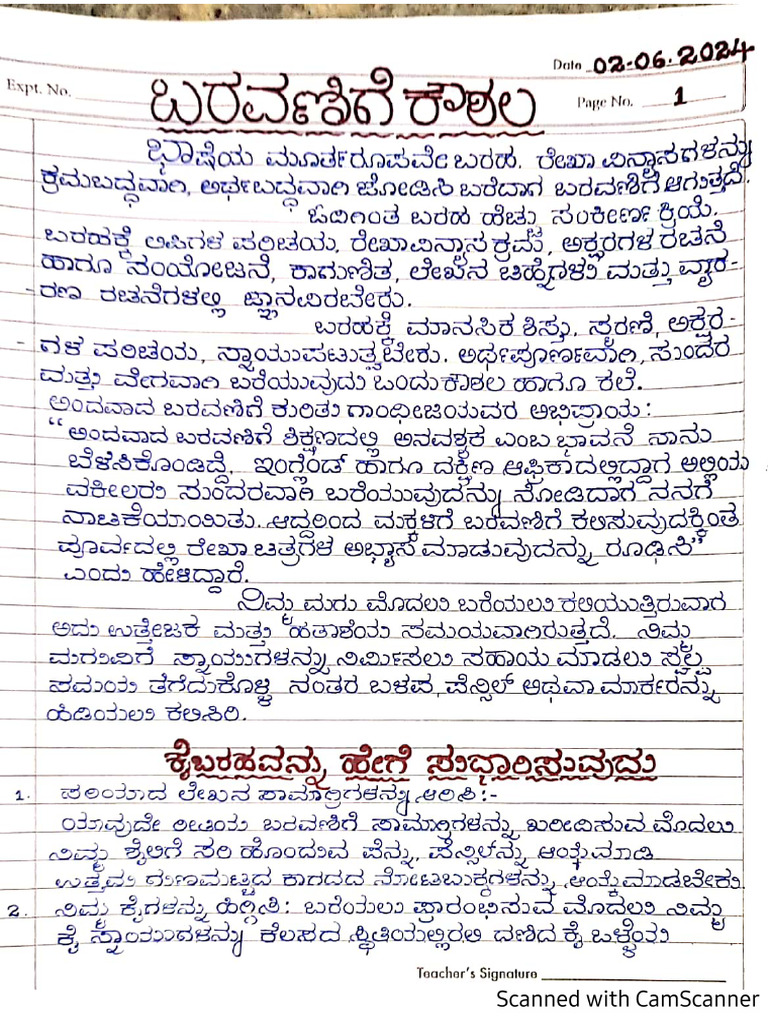 Date 02-06-2024
Expt. No.
ಬರವಣಿಗೆ ಕೌಶಲ
Page No. 1
ಭಾಷೆಯ ಮೂರ್ತರೂಪವೇ ಬರಹ. ರೇಖಾ ವಿನ್ಯಾಸಗಳನ್ನು
ಕ್ರಮಬದ್ಧವಾಗಿ, ಅರ್ಥಬದ್ಧವಾಗಿ ಜೋಡಿಸಿ ಬರೆದಾಗ ಬರವಣಿಗೆ ಆಗುತ್ತದೆ.
ಓದಿಗಿಂತ ಬರಹ ಹೆಚ್ಚು ಸಂಕೀರ್ಣ ಕ್ರಿಯೆ.
ಬರಹಕ್ಕೆ ಲಿಪಿಗಳ ಪರಿಚಯ, ರೇಖಾವಿನ್ಯಾಸಕ್ರಮ, ಅಕ್ಷರಗಳ ರಚನೆ
ಹಾಗೂ ಸಂಯೋಜನೆ, ಕಾಗುಣಿತ, ಲೇಖನ ಚಿಹ್ನೆಗಳು ಮತ್ತು ವ್ಯಾಕ-
-ರಣ ರಚನೆಗಳಲ್ಲಿ ಜ್ಞಾನವಿರಬೇಕು.
ಬರಹಕ್ಕೆ ಮಾನಸಿಕ ಶಿಸ್ತು, ಸ್ಮರಣೆ, ಅಕ್ಷರ-
-ಗಳ ಪರಿಚಯ, ಸ್ನಾಯುಪಟುತ್ವ ಬೇಕು. ಅರ್ಥಪೂರ್ಣವಾಗಿ, ಸುಂದರ
ಮತ್ತು ವೇಗವಾಗಿ ಬರೆಯುವುದು ಒಂದು ಕೌಶಲ ಹಾಗೂ ಕಲೆ.
ಅಂದವಾದ ಬರವಣಿಗೆ ಕುರಿತು ಗಾಂಧೀಜಿಯವರ ಅಭಿಪ್ರಾಯ:
"ಅಂದವಾದ ಬರವಣಿಗೆ ಶಿಕ್ಷಣದಲ್ಲಿ ಅನವಶ್ಯಕ ಎಂಬ ಭಾವನೆ ನಾನು
ಬೆಳೆಸಿಕೊಂಡಿದ್ದೆ, ಇಂಗ್ಲೆಂಡ್ ಹಾಗೂ ದಕ್ಷಿಣ ಆಫ್ರಿಕಾದಲ್ಲಿದ್ದಾಗ ಅಲ್ಲಿಯ
ವಕೀಲರು ಸುಂದರವಾಗಿ ಬರೆಯುವುದನ್ನು ನೋಡಿದಾಗ ನನಗೆ
ನಾಚಿಕೆಯಾಯಿತು. ಆದ್ದರಿಂದ ಮಕ್ಕಳಿಗೆ ಬರವಣಿಗೆ ಕಲಿಸುವುದಕ್ಕಿಂತ
ಪೂರ್ವದಲ್ಲಿ ರೇಖಾ ಚಿತ್ರಗಳ ಅಭ್ಯಾಸ ಮಾಡುವುದನ್ನು ರೂಢಿಸಿ"
ಎಂದು ಹೇಳಿದ್ದಾರೆ.
ನಿಮ್ಮ ಮಗು ಮೊದಲು ಬರೆಯಲು ಕಲಿಯುತ್ತಿರುವಾಗ
ಅದು ಉತ್ತೇಜಕ ಮತ್ತು ಹತಾಶೆಯ ಸಮಯವಾಗಿರುತ್ತದೆ. ನಿಮ್ಮ
ಮಗುವಿಗೆ ಸ್ನಾಯುಗಳನ್ನು ನಿರ್ಮಿಸಲು ಸಹಾಯ ಮಾಡಲು ಸ್ವಲ್ಪ
ಸಮಯ ತೆಗೆದುಕೊಳ್ಳಿ ನಂತರ ಬಳಪ, ಪೆನ್ಸಿಲ್ ಅಥವಾ ಮಾರ್ಕರನ್ನು
ಹಿಡಿಯಲು ಕಲಿಸಿರಿ.
ಕೈಬರಹವನ್ನು ಹೇಗೆ ಸುಧಾರಿಸುವುದು
1. ಸರಿಯಾದ ಲೇಖನ ಸಾಮಾಗ್ರಿಗಳನ್ನು ಆರಿಸಿ:-
ಯಾವುದೇ ರೀತಿಯ ಬರವಣಿಗೆ ಸಾಮಾಗ್ರಿಗಳನ್ನು ಖರೀದಿಸುವ ಮೊದಲು
ನಿಮ್ಮ ಶೈಲಿಗೆ ಸರಿ ಹೊಂದುವ ಪೆನ್ನು, ಪೆನ್ಸಿಲ್‌ನ್ನು ಆಯ್ಕೆ ಮಾಡಿ
ಉತ್ತಮ ಗುಣಮಟ್ಟದ ಕಾಗದದ ನೋಟಬುಕ್ಕಗಳನ್ನು ಆಯ್ಕೆ ಮಾಡಬೇಕು.
2. ನಿಮ್ಮ ಕೈಗಳನ್ನು ಹಿಗ್ಗಿಸಿ: ಬರೆಯಲು ಪ್ರಾರಂಭಿಸುವ ಮೊದಲು ನಿಮ್ಮ
ಕೈ ಸ್ನಾಯುಗಳನ್ನು ಕೆಲಸದ ಸ್ಥಿತಿಯಲ್ಲಿರಲಿ ದಣಿದ ಕೈ ಒಳ್ಳೆಯ
Teacher's Signature
Scanned with CamScanner